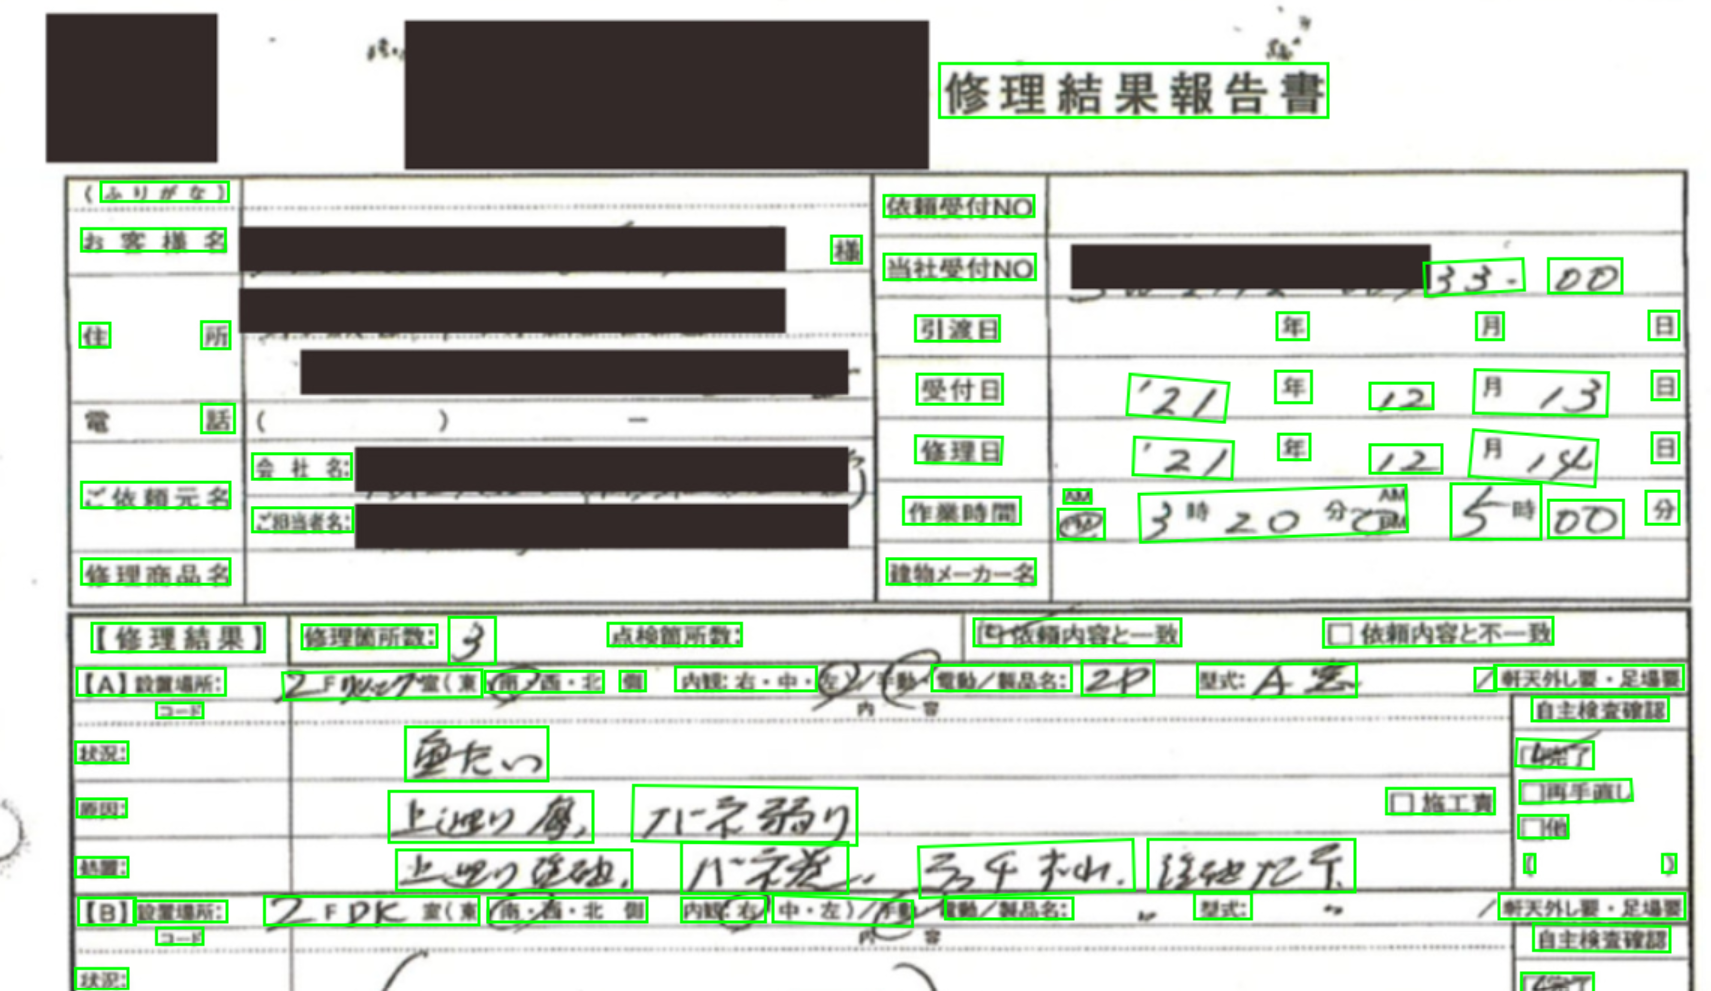 修理結果報告書
(ふりがな)
依頼受付NO
お客様名 様
当社受付NO 33-00
住所
引渡日 年 月 日
受付日 '21年12月13日
電話 ( ) ー
修理日 '21年12月14日
会社名:
ご依頼元名
作業時間 AM PM 3時20分〜 AM PM 5時00分
ご担当者名:
修理商品名
建物メーカー名
【修理結果】 修理箇所数: 3 点検箇所数: □依頼内容と一致 □依頼内容と不一致
【A】設置場所: 2F 室(東・南・西・北 側 内観:右・中・左)/手動・電動/製品名: 2P 型式: A /軒天外し要・足場要
コード 内容 自主検査確認
状況: 重たい □完了
原因: 上 バネ弱り □施工責 □再手直し
□他
処置: 上 バネ ( )
【B】設置場所: 2F DK 室(東・南・西・北 側 内観:右・中・左)/手動・電動/製品名: 〃 型式: 〃 /軒天外し要・足場要
コード 内容 自主検査確認
状況: □完了